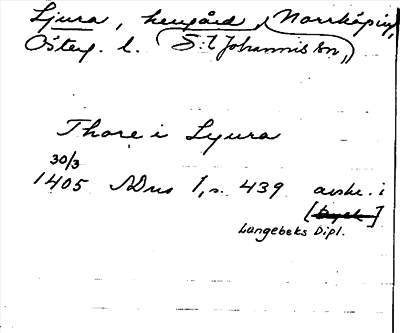 Ljura, herrgård, Norrköping,
Österg. l. S:t Johannis sn,
Thore i Lyura
30/3
1405 SDns 1, s. 439 avskr. i
[tryck]
Langebeks Dipl.